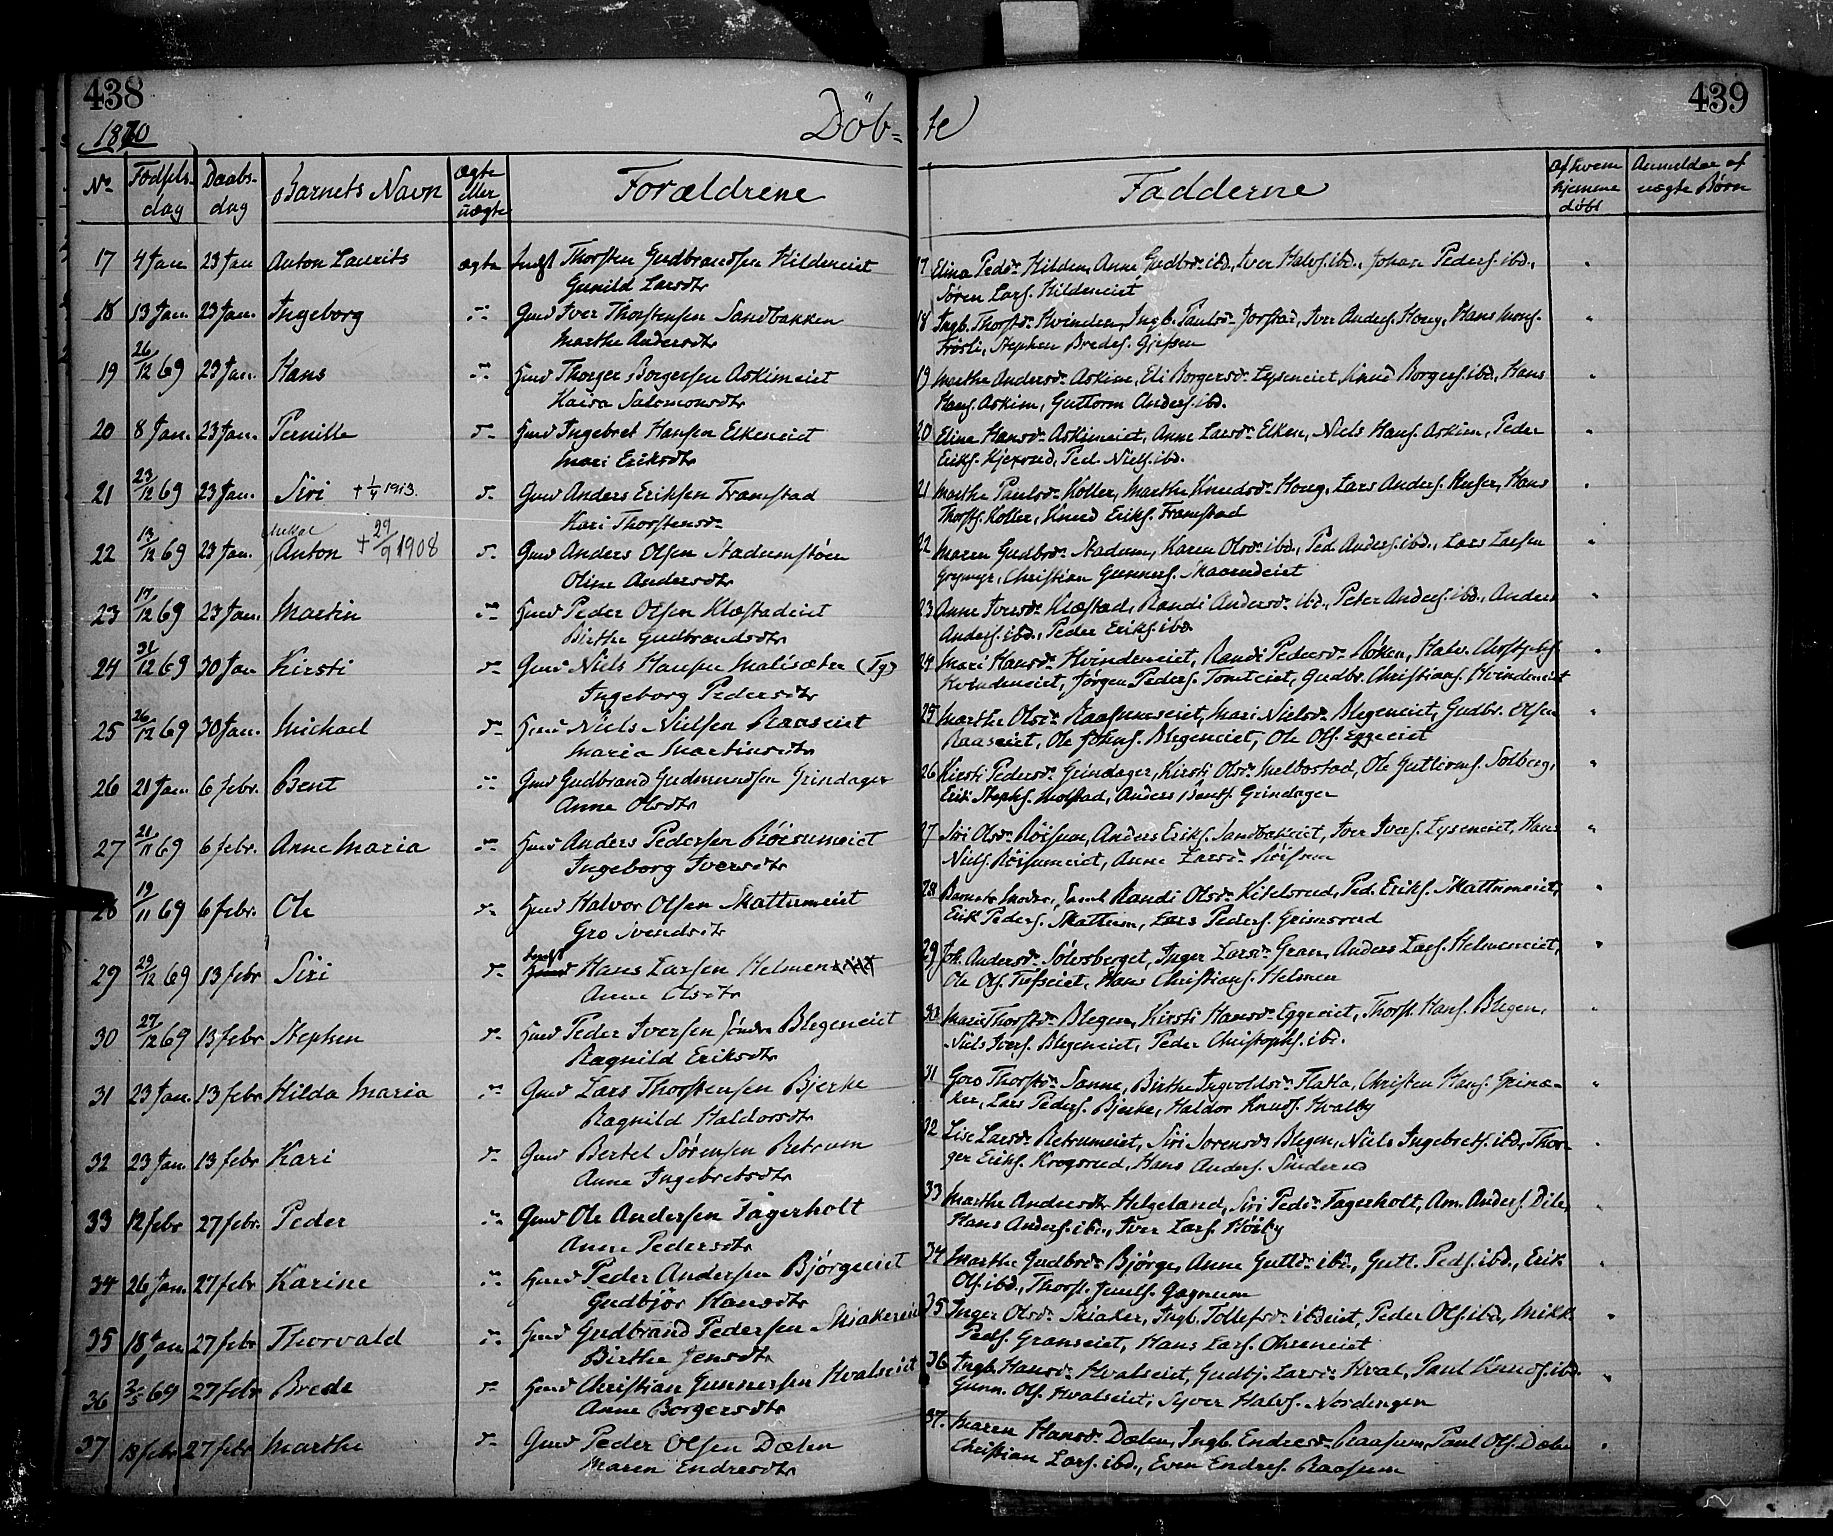 438
439
1870
Döb= te
No
Fødsels dag
Daabs dag
Barnets Navn
Ægte eller uægte
Forældrene
Fadderne
Af hvem hjemme døbt
Anmeldse af uægte Børn
17 4 Jan 23 Jan Anton Laurits ægte Indst Thorsten Gudbrandsen Hildeneiet
Gunild Larsdtr
17 Elina Pedsdr Hilden, Anne Gudbrdr ibd., Iver Halvs. ibd., Johan Peders. ibd.,
Søren Lars. Hildeneiet
18 13 Jan. 23 Jan. Ingeborg Gmd Iver Thorstensen Sandbakken
Marthe Andersdtr
18 Ingb. Thorstdr Hvinden, Ingb. Paulsdr Jorstad, Iver Anders. Houg, Hans Mons.
Frøsli, Stephen Bredes. Gjefsen
19 26/12 69 23 Jan. Hans Hmd Thorger Borgersen Askimeiet
Kaisa Salomonsdtr
19 Marthe Andersdr Askim, Eli Borgersdr Lyseneiet, Knud Borgers. ibd., Hans
Hans. Askim, Guttorm Anders. ibd.
20 8 Jan. 23 Jan. Pernille Hmd Ingebret Hansen Elkeneiet
Mari Eriksdtr
20 Elina Hansdr Askimeiet, Anne Larsdr Elken, Niels Hans. Askim, Peder
Eriks. Kjexrud, Ped. Niels. ibd.
21 23/12 69 23 Jan. Siri + 1/4 1913. Gmd Anders Eriksen Framstad
Kari Thorstensdr
21 Marthe Paulsdr Koller, Marthe Knudsdr Houg, Lars Anders. Huser, Hans
Thorsts. Koller, Knud Eriks. Framstad
22 13/12 69 23 Jan. Anton + 29/9 1908 Gmd Anders Olsen Stadumstøen
Oline Andersdtr
22 Maren Gudbrdr Stadum, Karen Olsdr ibd., Ped. Anders. ibd., Lars Larsen
Grymyr, Christian Gunners. Skaarudeiet
23 17/12 69 23 Jan. Martin Hmd Peder Olsen Klæstadeiet
Birthe Gudbrandsdtr
23 Anne Iversdr Klæstad, Randi Andersdr ibd., Peter Anders. ibd., Anders
Anders. ibd., Peder Eriks. ibd.
24 31/12 69 30 Jan Kirsti Gmd Niels Hansen Malisæter (Ty)
Ingeborg Pedersdtr
24 Mari Hansdr Hvindeneiet, Randi Pedersdr Røken, Halv. Christophs.
Hvindeneiet, Jørgen Peders. Tomteiet, Gudbr. Christians. Hvindeneiet
25 26/12 69 30 Jan. Michael Hmd Niels Nielsen Raaseiet
Maria Martinsdtr
25 Marthe Olsdr Raasumseiet, Mari Nielsdr Blegeneiet, Gudbr. Olsen
Raaseiet, Ole Johns. Blegeneiet, Ole Ols. Eggeeiet
26 21 Jan. 6 febr. Bent Gmd Gudbrand Gudmundsen Grindager
Anne Olsdtr
26 Kirsti Pedersdr Grindager, Kirsti Olsdr Melbostad, Ole Guttorms. Solberg,
Erik Stephs. Molstad, Anders Bents. Grindager
27 21/11 69 6 febr. Anne Maria Hmd Anders Pedersen Røisumeiet
Ingeborg Iversdtr
27 Siri Olsdr Røisum, Anders Eriks. Sandbakeiet, Iver Ivers. Lyseneiet, Hans
Niels. Røisumeiet, Anne Larsdr Røisum
28 19/11 69 6 febr. Ole Hmd Halvor Olsen Skattumeiet
Gro Svendsdtr
28 Barnets Moder, samt Randi Olsdr Kiselsrud, Ped. Eriks. Skattumeiet,
Erik Peders. Skattum, Lars Peders. Grimsrud
29 29/12 69 13 febr Siri Indst Hans Larsen Helmen
Anne Olsdtr
29 Joh. Andersdr Sølvsberget, Inger Larsdr Gran, Anders Lars. Helmeneiet,
Ole Ols. Tufseiet, Hans Christians. Helmen
30 27/12 69 13 febr Stephen Hmd Peder Iversen søndre Blegeneiet
Ragnild Eriksdtr
30 Mari Thorstdr Blegen, Kirsti Hansdr Eggeeiet, Thorst. Hans. Blegen,
Niels Ivers. Blegeneiet, Peder Christophs. ibd.
31 23 Jan. 13 febr Hilda Maria Gmd Lars Thorstensen Bjerke
Ragnild Haldorsdtr
31 Goro Thorstdr Sanne, Birthe Ingvoldsdr Flatla, Christen Hans. Grinaker,
Lars Peders. Bjerke, Haldor Knuds. Hvalby
32 23 Jan. 13 febr Kari Gmd Bertel Sørensen Retrum
Anne Ingebretsdtr
32 Lise Larsdr Retrumeiet, Siri Sørensdr Blegen, Niels Ingebrets. ibd., Thorger
Eriks. Krogsrud, Hans Anders. Sinderud
33 12 febr 27 febr. Peder Gmd Ole Andersen Fagerholt
Anne Pedersdtr
33 Marthe Andersdtr Helgeland, Siri Pedsdr Fagerholt, Am. Anders. Dihle,
Hans Anders. ibd., Iver Lars. Høiby
34 26 Jan. 27 febr Karine Hmd Peder Andersen Bjørgeeiet
Gudbjør Hansdtr
34 Marthe Gudbrdr Bjørge, Anne Guttdr ibd., Gutt. Peds. ibd., Erik
Ols. ibd., Thorst. Juuls. Gagnum
35 18 Jan 27 febr Thorvald Hmd Gudbrand Pedersen Skiakereiet
Birthe Jensdtr
35 Inger Olsdr Skiaker, Ingb. Tollefsdr ibdeiet, Peder Ols. ibd., Mikk.
Peds. Granseiet, Hans Lars. Ohreneiet
36 2/5 69 27 febr Brede Hmd Christian Gunnersen Hvalseiet
Anne Borgersdtr
36 Ingb. Hansdr Hvalseiet, Gudbj. Larsdr Hval, Paul Knuds. ibd.
Gunn. Ols. Hvalseiet, Syver Halvs. Nordengen
37 13 febr 27 febr Marthe Gmd Peder Olsen Dælen
Maren Endresdtr
37. Maren Hansdr Dælen, Ingb. Endresdr Raasum, Paul Ols. Dælen
Christian Lars. ibd., Even Endres. Raasum